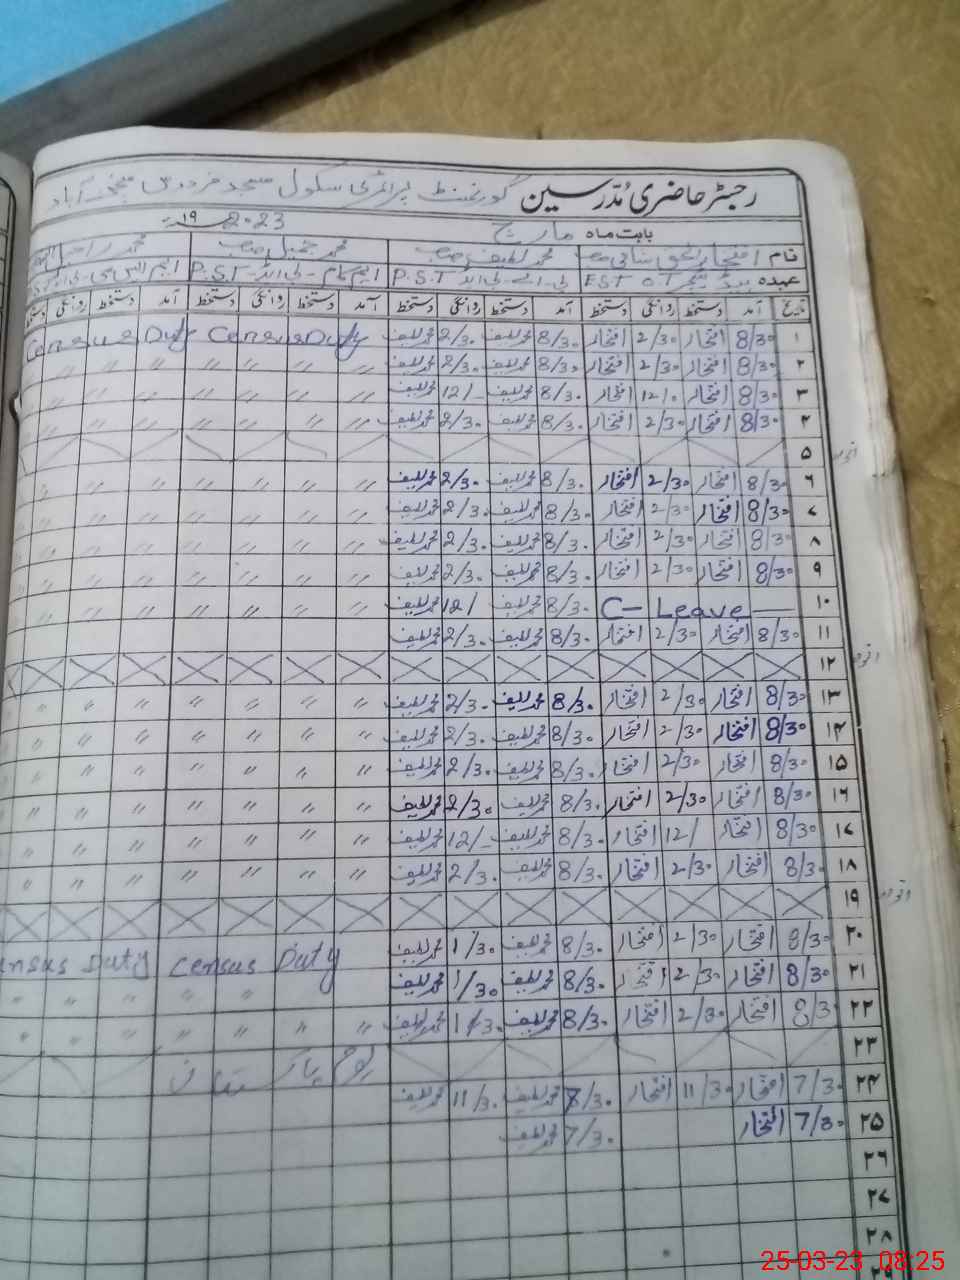 رجسٹر حاضری مُدرسین گورنمنٹ پرائمری سکول مسجد فردوس
بابت ماہ مارچ 2023 ۱۹
نام افتخار الحق محمد لطیف صاحب محمد جمیل صاحب محمد
عہدہ ہیڈ ٹیچر E.S.T بی۔اے۔بی ایڈ P.S.T ایم کام۔بی ایڈ P.S.T
تاریخ آمد دستخط روانگی دستخط آمد دستخط روانگی دستخط آمد دستخط روانگی دستخط آمد دستخط روانگی دستخط
۱ 8/30 افتخار 2/30 افتخار 8/30 محمد لطیف 2/30 محمد لطیف Census Duty Census Duty
۲ 8/30 افتخار 2/30 افتخار 8/30 محمد لطیف 2/30 محمد لطیف 〃 〃 〃 〃 〃 〃 〃
۳ 8/30 افتخار 12/0 افتخار 8/30 محمد لطیف 12/- محمد لطیف 〃 〃 〃 〃 〃 〃 〃
۴ 8/30 افتخار 2/30 افتخار 8/30 محمد لطیف 2/30 محمد لطیف 〃 〃 〃 〃 〃 〃 〃
۵ اتوار
۶ 8/30 افتخار 2/30 افتخار 8/30 محمد لطیف 2/30 محمد لطیف 〃 〃 〃 〃 〃 〃 〃
۷ 8/30 افتخار 2/30 افتخار 8/30 محمد لطیف 2/30 محمد لطیف 〃 〃 〃 〃 〃 〃 〃
۸ 8/30 افتخار 2/30 افتخار 8/30 محمد لطیف 2/30 محمد لطیف 〃 〃 〃 〃 〃 〃 〃
۹ 8/30 افتخار 2/30 افتخار 8/30 محمد لطیف 2/30 محمد لطیف 〃 〃 〃 〃 〃 〃 〃
۱۰ C- Leave 8/30 محمد لطیف 12/ محمد لطیف 〃 〃 〃 〃 〃 〃 〃
۱۱ 8/30 افتخار 2/30 افتخار 8/30 محمد لطیف 2/30 محمد لطیف
۱۲ اتوار
۱۳ 8/30 افتخار 2/30 افتخار 8/30 محمد لطیف 2/30 محمد لطیف 〃 〃 〃 〃 〃 〃 〃
۱۴ 8/30 افتخار 2/30 افتخار 8/30 محمد لطیف 2/30 محمد لطیف 〃 〃 〃 〃 〃 〃 〃
۱۵ 8/30 افتخار 2/30 افتخار 8/30 محمد لطیف 2/30 محمد لطیف 〃 〃 〃 〃 〃 〃 〃
۱۶ 8/30 افتخار 2/30 افتخار 8/30 محمد لطیف 2/30 محمد لطیف 〃 〃 〃 〃 〃 〃 〃
۱۷ 8/30 افتخار 12/ افتخار 8/30 محمد لطیف 12/- محمد لطیف 〃 〃 〃 〃 〃 〃 〃
۱۸ 8/30 افتخار 2/30 افتخار 8/30 محمد لطیف 2/30 محمد لطیف 〃 〃 〃 〃 〃 〃 〃
۱۹ اتوار
۲۰ 8/30 افتخار 2/30 افتخار 8/30 محمد لطیف 1/30 محمد لطیف Census Duty Duty
۲۱ 8/30 افتخار 2/30 افتخار 8/30 محمد لطیف 1/30 محمد لطیف 〃 〃 〃 〃 〃 〃
۲۲ 8/3 افتخار 2/30 افتخار 8/30 محمد لطیف 1/30 محمد لطیف 〃 〃 〃 〃 〃 〃 〃
۲۳ یوم پاکستان
۲۴ 7/30 افتخار 11/30 افتخار 8/30 محمد لطیف 11/30 محمد لطیف
۲۵ 7/30 افتخار 7/30 محمد لطیف
۲۶
۲۷
۲۸
۲۹
25-03-23 08:25